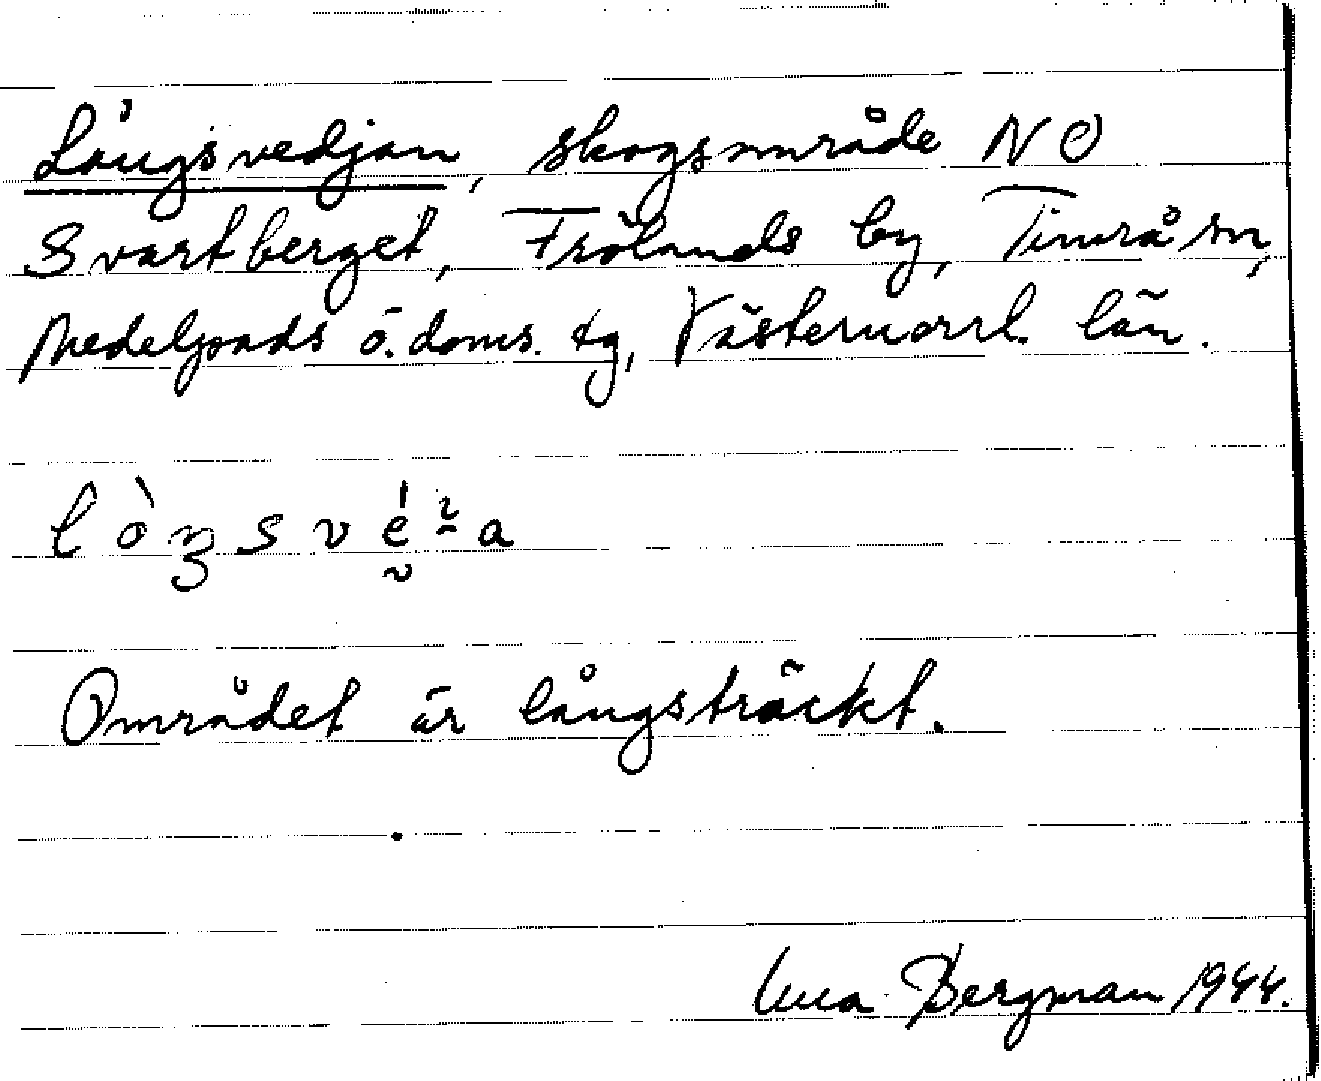 Långsvedjan, skogsområde NO
Svartberget, Frölands by, Timrå sn,
Medelpads ö. doms. tg, Västernorrl. län.
Området är långsträckt.
Bergman 1944.